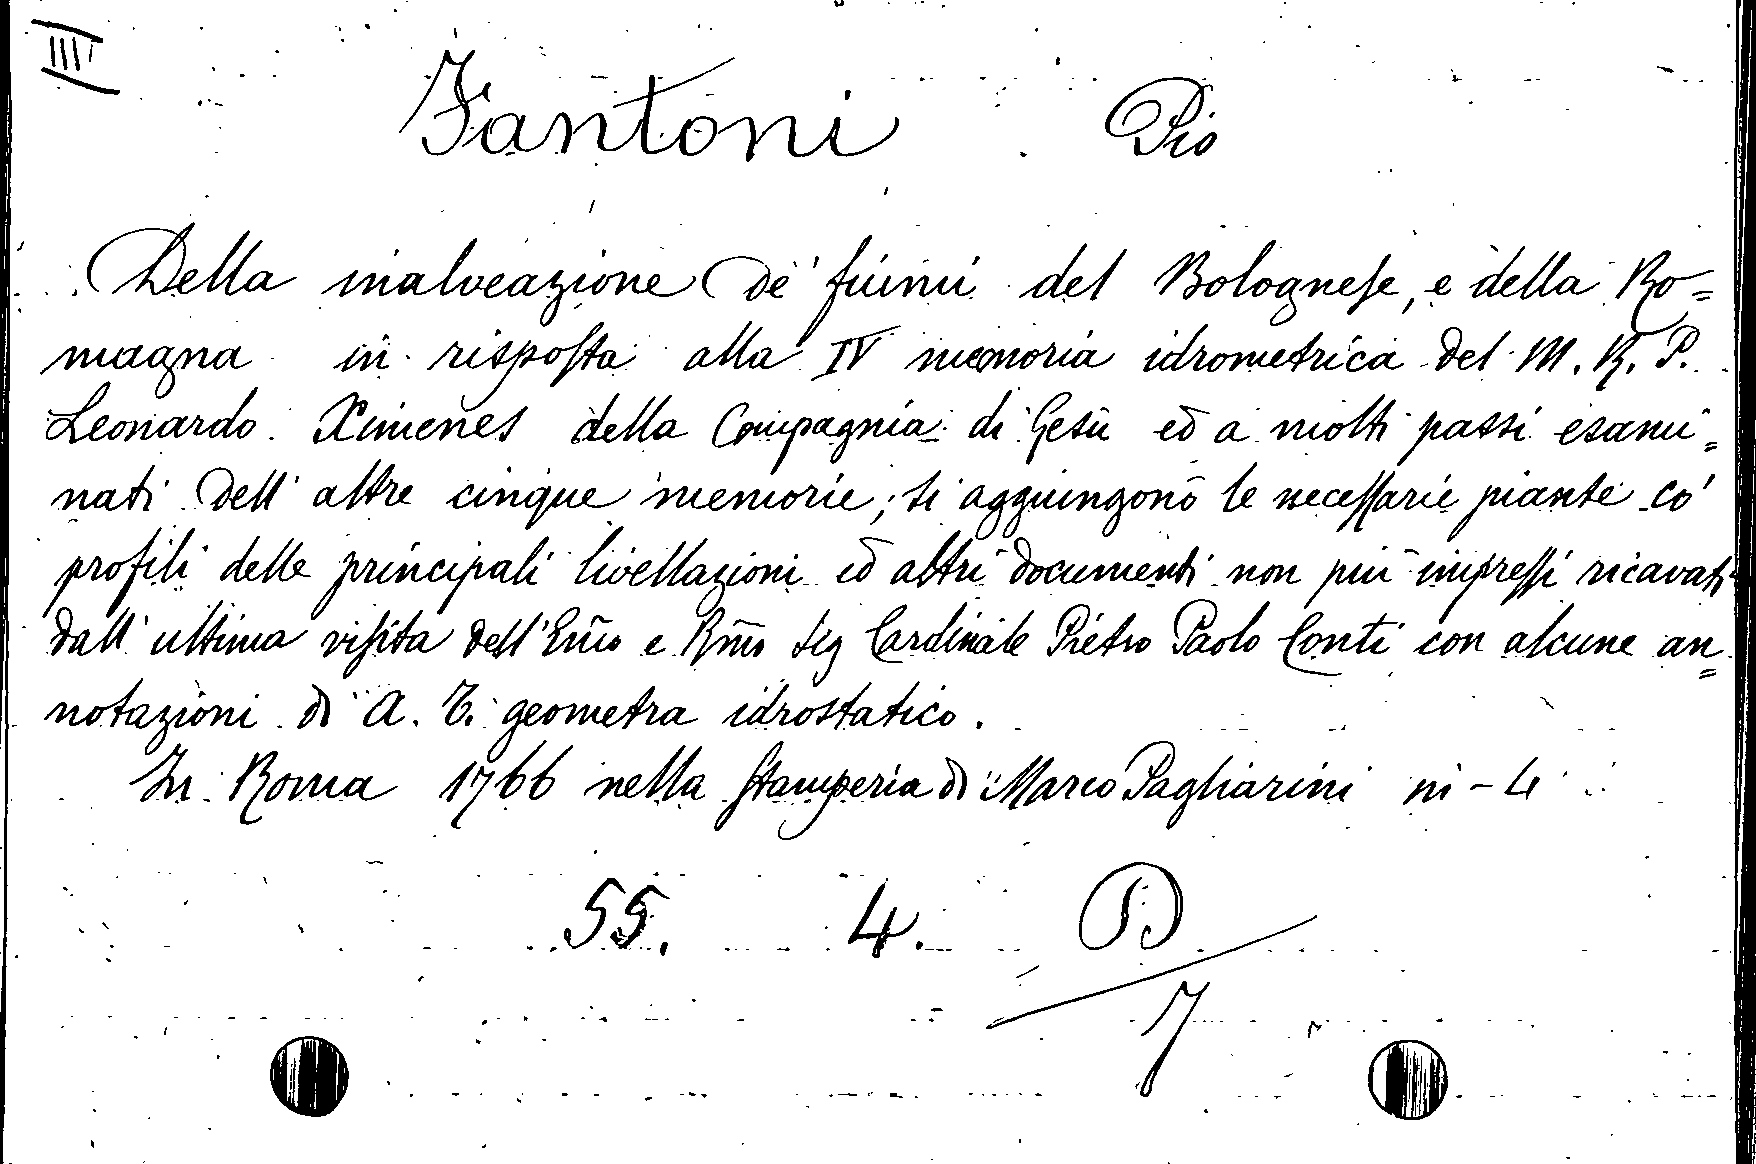 IIII
Fantoni Pio
Della inalveazione de' fiumi del Bolognese, e della Ro=
magna in risposta alla IV memoria idrometrica del M. R. P.
Leonardo Ximenes della Compagnia di Gesù ed a molti passi esami=
nati dell' altre cinque memorie; si aggiungono le necessarie piante co'
profili delle principali livellazioni ed altri documenti non più impressi ricavati
dall' ultima visita dell' Emo e Rmo Sig Cardinale Pietro Paolo Conti con alcune an=
notazioni di A. T. geometra idrostatico.
In Roma 1766 nella Stamperia di Marco Pagliarini in - 4
55. 4. D
7